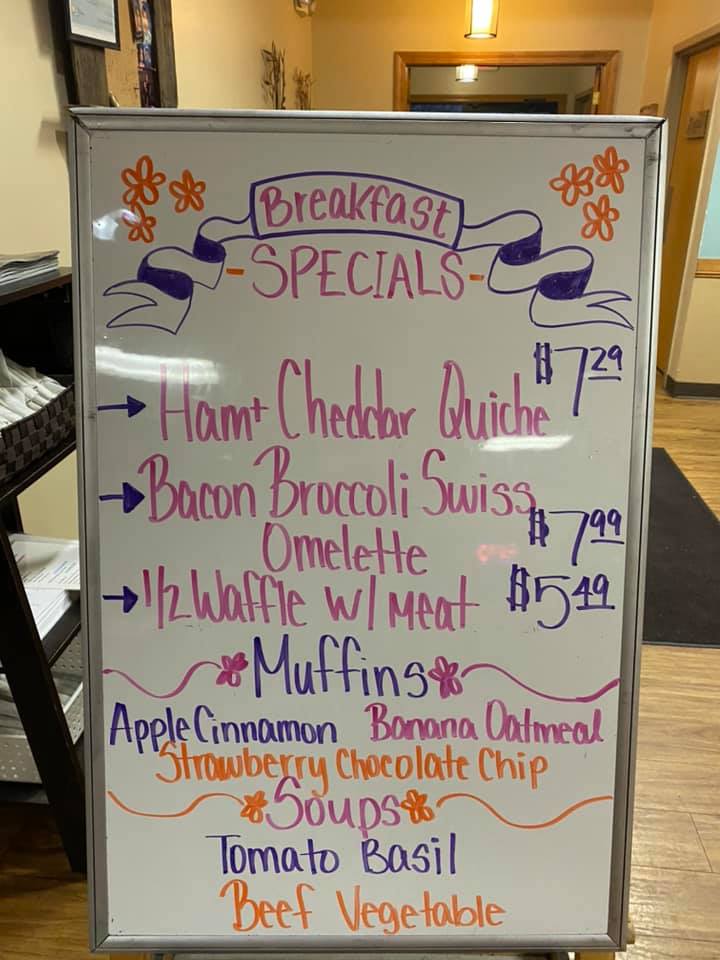 Breakfast
-SPECIALS-
$7.29
→ Ham + Cheddar Quiche
→ Bacon Broccoli Swiss
Omelette $7.99
→ 1/2 Waffle w/ Meat $5.49
Muffins
Apple Cinnamon Banana Oatmeal
Strawberry Chocolate Chip
Soups
Tomato Basil
Beef Vegetable